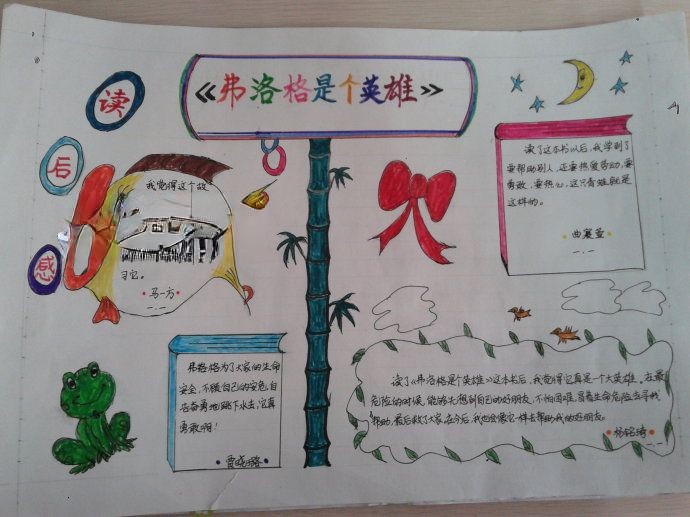 《弗洛格是个英雄》
读
后
感
我觉得这个故
习它。
马一方
一.一
读了这本书以后,我学到了
要帮助别人,还要热爱劳动,要
勇敢,要热心,这只青蛙就是
这样的。
曲
一.一
弗洛格为了大家的生命
安全,不顾自己的安危,自
告奋勇地跳下水去,它真
勇敢啊!
贾晓璐
读了《弗洛格是个英雄》这本书后,我觉得它真是一个大英雄。在最
危险的时候,能够先想到自己的好朋友,不怕困难,冒着生命危险去寻找
帮助,最后救了大家,在今后,我也会像它一样去帮助我的好朋友。
杨铭